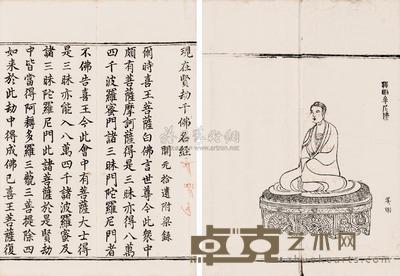 現在賢劫千佛名經
開元拾遺附梁錄
爾時喜王菩薩白佛言世尊今此衆中
頗有菩薩摩訶薩得是三昧亦得八萬
四千波羅蜜門諸三昧門陀羅尼門者
不佛告喜王今此會中有菩薩大士得
是三昧亦能入八萬四千諸波羅蜜及
諸三昧陀羅尼門此諸菩薩於是賢劫
中皆當得阿耨多羅三藐三菩提除四
如来於此劫中得成佛已喜王菩薩復